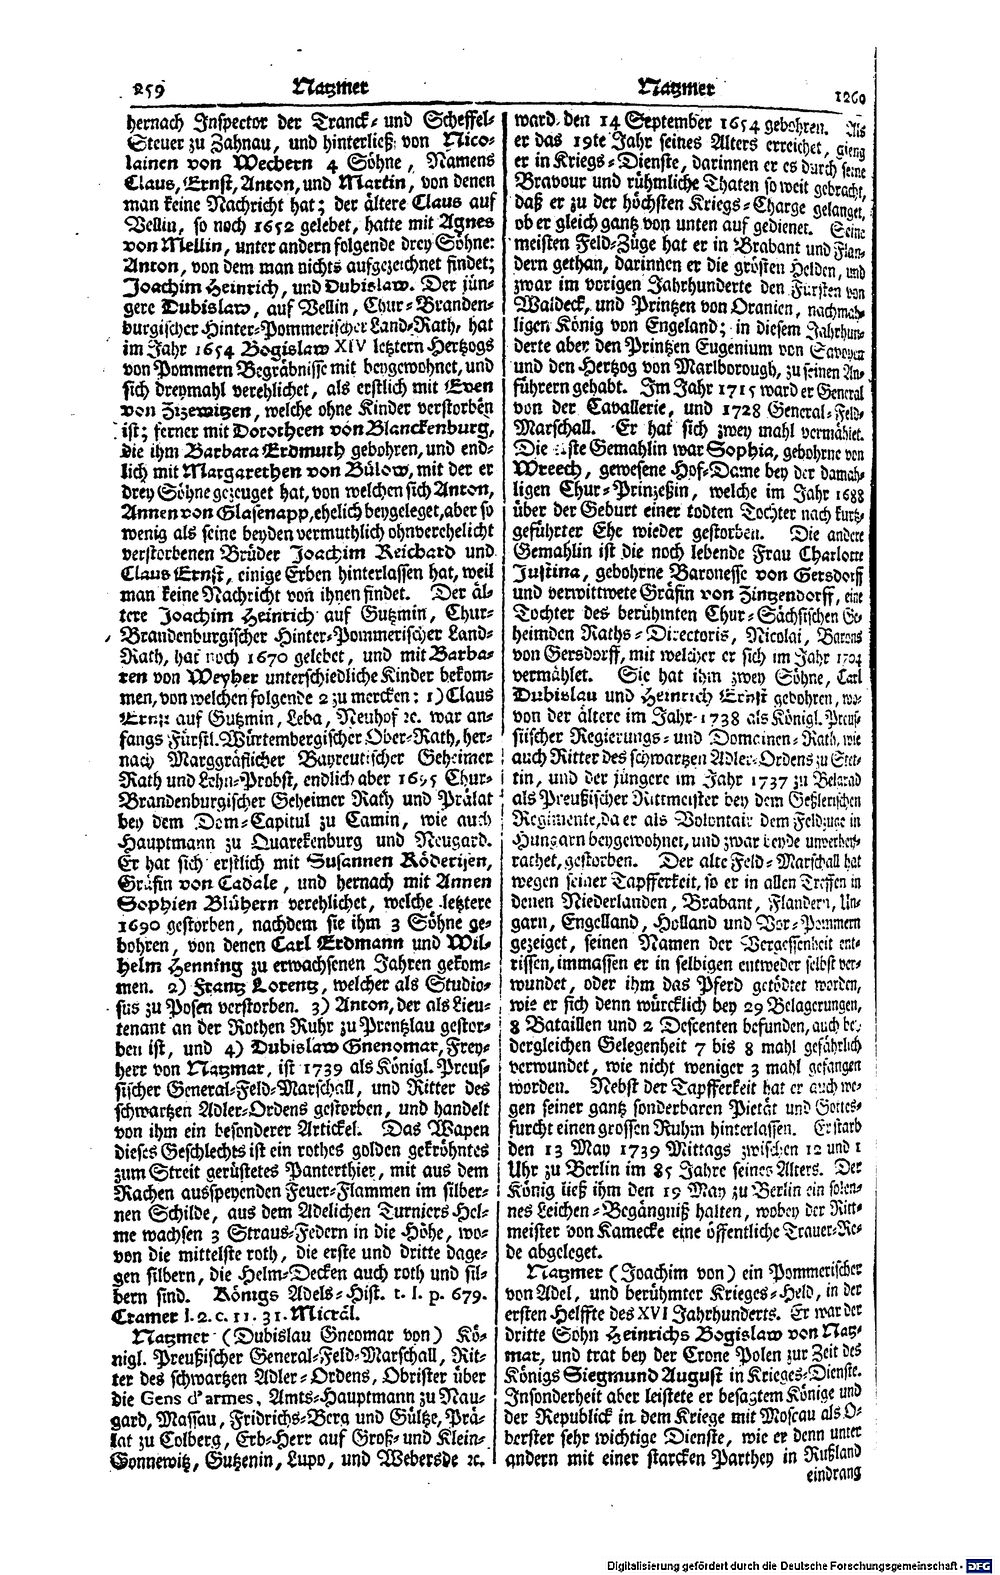 259 Natzmer
Natzmer 1260
hernach Inspector der Tranck- und Scheffel-
Steuer zu Zahnau, und hinterließ von Nico-
lainen von Wechern 4 Söhne, Namens
Claus, Ernst, Anton, und Martin, von denen
man keine Nachricht hat; der ältere Claus auf
Vellin, so noch 1652 gelebet, hatte mit Agnes
von Mellin, unter andern folgende drey Söhne:
Anton, von dem man nichts aufgezeichnet findet;
Joachim Heinrich, und Dubislaw. Der jün-
gere Dubislaw, auf Vellin, Chur-Branden-
burgischer Hinter-Pommerischer Land-Rath, hat
im Jahr 1654 Bogislaw XIV letztern Hertzogs
von Pommern Begräbnisse mit beygewohnet, und
sich dreymahl verehlichet, als erstlich mit Even
von Zizewitzen, welche ohne Kinder verstorben
ist; ferner mit Dorotheen von Blanckenburg,
die ihm Barbara Erdmuth gebohren, und end-
lich mit Margarethen von Bülow, mit der er
drey Söhne gezeuget hat, von welchen sich Anton,
Annen von Glasenapp, ehelich beygeleget, aber so
wenig als seine beyden vermuthlich ohnverehelicht
verstorbenen Brüder Joachim Reichard und
Claus Ernst, einige Erben hinterlassen hat, weil
man keine Nachricht von ihnen findet. Der äl-
tere Joachim Heinrich auf Gutzmin, Chur-
Brandenburgischer Hinter-Pommerischer Land-
Rath, hat noch 1670 gelebet, und mit Barba-
ren von Weyher unterschiedliche Kinder bekom-
men, von welchen folgende 2 zu mercken: 1) Claus
Ernst auf Gutzmin, Leba, Neuhof ꝛc. war an-
fangs Fürstl. Würtembergischer Ober-Rath, her-
nach Marggräflicher Bayreutischer Geheimer
Rath und Lehn-Probst, endlich aber 1695 Chur-
Brandenburgischer Geheimer Rath und Prälat
bey dem Dom-Capitul zu Camin, wie auch
Hauptmann zu Quarekenburg und Neugard.
Er hat sich erstlich mit Susannen Röderizen,
Gräfin von Cadale, und hernach mit Annen
Sophien Blühern verehlichet, welche letztere
1690 gestorben, nachdem sie ihm 3 Söhne ge-
bohren, von denen Carl Erdmann und Wil-
helm Henning zu erwachsenen Jahren gekom-
men. 2) Frantz Lorentz, welcher als Studio-
sus zu Posen verstorben. 3) Anton, der als Lieu-
tenant an der Rothen Ruhr zu Prentzlau gestor-
ben ist, und 4) Dubislaw Gnenomar, Frey-
herr von Natzmar, ist 1739 als Königl. Preus-
sischer General-Feld-Marschall, und Ritter des
schwartzen Adler-Ordens gestorben, und handelt
von ihm ein besonderer Artickel. Das Wapen
dieses Geschlechts ist ein rothes golden gekröhntes
zum Streit gerüstetes Panterthier, mit aus dem
Rachen ausspeyenden Feuer-Flammen im silber-
nen Schilde, aus dem Adelichen Turniers Hel-
me wachsen 3 Straus-Federn in die Höhe, wo-
von die mittelste roth, die erste und dritte dage-
gen silbern, die Helm-Decken auch roth und sil-
bern sind. Königs Adels-Hist. t. I. p. 679.
Cramer l. 2. c. 11. 31. Micräl.
Natzmer (Dubislau Gneomar von) Kö-
nigl. Preußischer General-Feld-Marschall, Rit-
ter des schwartzen Adler-Ordens, Obrister über
die Gens d'armes, Amts-Hauptmann zu Nau-
gard, Massau, Fridrichs-Berg und Gültze, Prä-
lat zu Colberg, Erb-Herr auf Groß- und Klein-
Gonnewitz, Gutzenin, Lupo, und Webersde ꝛc.
ward den 14 September 1654 gebohren. Als
er das 19te Jahr seines Alters erreichet, gieng
er in Kriegs-Dienste, darinnen er es durch seine
Bravour und rühmliche Thaten so weit gebracht,
daß er zu der höchsten Kriegs-Charge gelanget,
ob er gleich gantz von unten auf gedienet. Seine
meisten Feld-Züge hat er in Brabant und Flan-
dern gethan, darinnen er die grösten Helden, und
zwar im vorigen Jahrhunderte den Fürsten von
Waldeck, und Printzen von Oranien, nachmah-
ligen König von Engeland; in diesem Jahrhun-
derte aber den Printzen Eugenium von Savoyen
und den Hertzog von Marlborough, zu seinen An-
führern gehabt. Im Jahr 1715 ward er General
von der Cavallerie, und 1728 General-Feld-
Marschall. Er hat sich zwey mahl vermählet.
Die erste Gemahlin war Sophia, gebohrne von
Wreech, gewesene Hof-Dame bey der damah-
ligen Chur-Prinzeßin, welche im Jahr 1688
über der Geburt einer todten Tochter nach kurtz-
geführter Ehe wieder gestorben. Die andere
Gemahlin ist die noch lebende Frau Charlotte
Justina, gebohrne Baronesse von Gersdorff
und verwittwete Gräfin von Zinzendorff, eine
Tochter des berühmten Chur-Sächsischen Ge-
heimden Raths-Directoris, Nicolai, Barons
von Gersdorff, mit welcher er sich im Jahr 1704
vermählet. Sie hat ihm zwey Söhne, Carl
Dubislau und Heinrich Ernst gebohren, wo-
von der ältere im Jahr 1738 als Königl. Preus-
sischer Regierungs- und Domeinen-Rath, wie
auch Ritter des schwartzen Adler-Ordens zu Stet-
tin, und der jüngere im Jahr 1737 zu Belgrad
als Preußischer Rittmeister bey dem Geßlerischen
Regimente, da er als Volontair dem Feldzuge in
Hungarn beygewohnet, und zwar beyde unverhey-
rathet, gestorben. Der alte Feld-Marschall hat
wegen seiner Tapfferkeit, so er in allen Treffen in
denen Niederlanden, Brabant, Flandern, Un-
garn, Engelland, Holland und Vor-Pommern
gezeiget, seinen Namen der Vergessenheit ent-
rissen, immassen er in selbigen entweder selbst ver-
wundet, oder ihm das Pferd getödtet worden,
wie er sich denn würcklich bey 29 Belagerungen,
8 Bataillen und 2 Descenten befunden, auch bey
dergleichen Gelegenheit 7 bis 8 mahl gefährlich
verwundet, wie nicht weniger 3 mahl gefangen
worden. Nebst der Tapfferkeit hat er auch we-
gen seiner gantz sonderbaren Pietät und Gottes-
furcht einen grossen Ruhm hinterlassen. Er starb
den 13 May 1739 Mittags zwischen 12 und 1
Uhr zu Berlin im 85 Jahre seines Alters. Der
König ließ ihm den 19 May zu Berlin ein solen-
nes Leichen-Begängniß halten, wobey der Ritt-
meister von Kamecke eine öffentliche Trauer-Re-
de abgeleget.
Natzmer (Joachim von) ein Pommerischer
von Adel, und berühmter Krieges-Held, in der
ersten Helffte des XVI Jahrhunderts. Er war der
dritte Sohn Heinrichs Bogislaw von Natz-
mar, und trat bey der Crone Polen zur Zeit des
Königs Siegmund August in Krieges-Dienste.
Insonderheit aber leistete er besagtem Könige und
der Republick in dem Kriege mit Moscau als O-
berster sehr wichtige Dienste, wie er denn unter
andern mit einer starcken Parthey in Rußland
eindrang
Digitalisierung gefördert durch die Deutsche Forschungsgemeinschaft - DFG